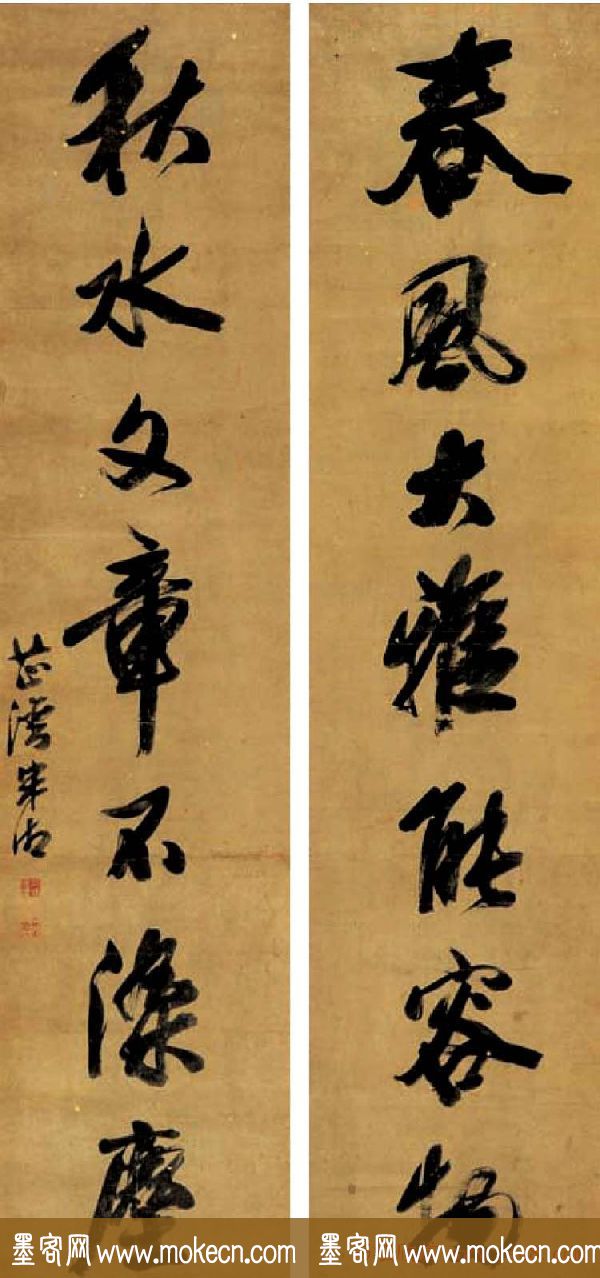 春風大雅能容物
秋水文章不染塵
芷灣宋湘
墨客网 www.mokecn.com
墨客网 www.mokecn.com